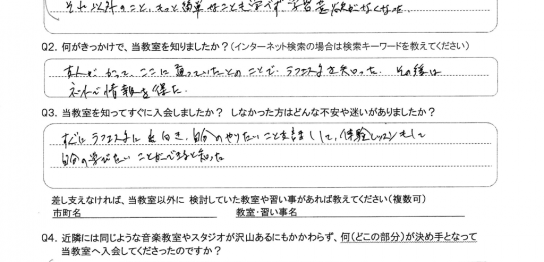 それ以外のこと、もっと簡単なことも学べず、
Q2. 何がきっかけで、当教室を知りましたか？(インターネット検索の場合は検索キーワードを教えてください)
友人がかつて、ここに通っていたとのことで、ラフェスタを知った。その後は
ネットで情報を得た。
Q3. 当教室を知ってすぐに入会しましたか？ しなかった方はどんな不安や迷いがありましたか？
すぐにラフェスタに出向き、自分のやりたいことを話して、体験レッスンをして
自分の学びたいことができると知った
差し支えなければ、当教室以外に 検討していた教室や習い事があれば教えてください（複数可）
市町名 教室・習い事名
Q4. 近隣には同じような音楽教室やスタジオが沢山あるにもかかわらず、何(どこの部分)が決め手となって
当教室へ入会してくださったのですか？